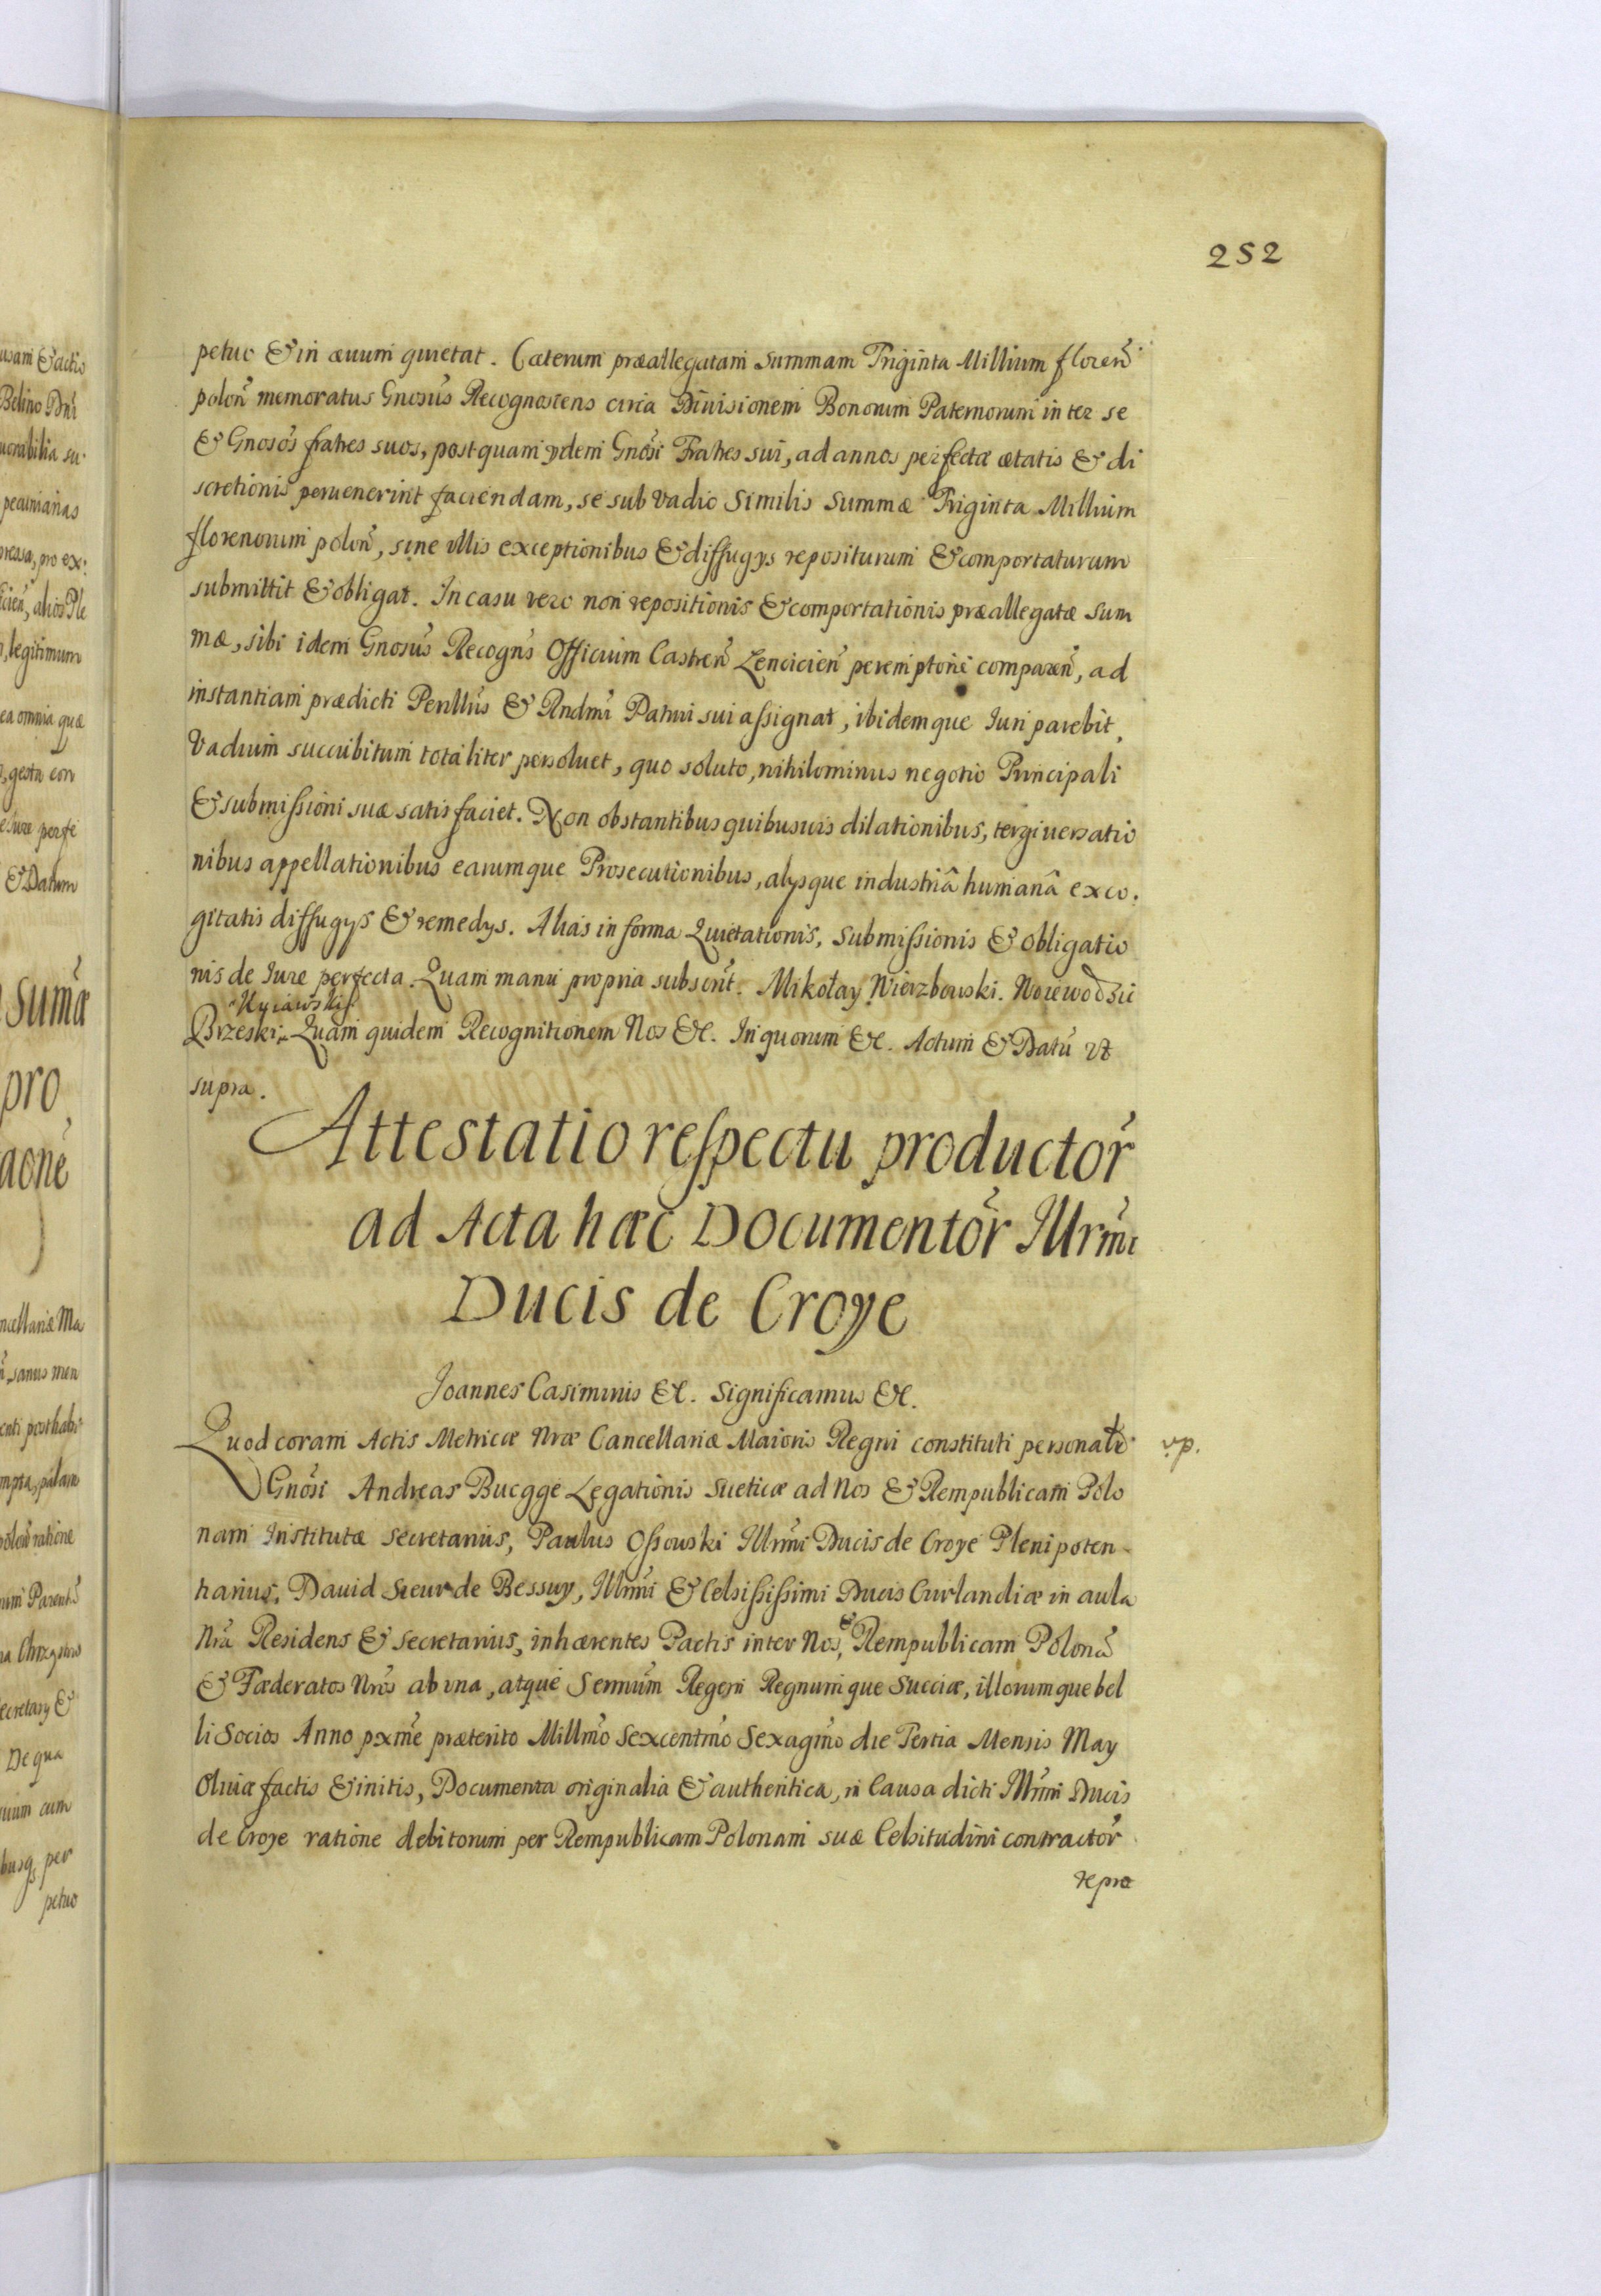 252
petuo & in æuum quietat. Cæterum præallegatam summam Triginta Millium floren̄
polon̄ memoratus Gnosūs Recognoscens circa Diuisionem Bonorum Paternorum inter se
& Gnosōs fratres suos, postquam ydem Gnōsi Fratres sui, ad annos perfectæ ætatis & di
scretionis peruenerint faciendam, se sub vadio similis summæ Triginta Millium
florenorum polon̄, sine vllis exceptionibus & diffugys repositurum & comportaturum
submittit & obligat. In casu vero non repositionis & comportationis præallegatæ sum
mæ, sibi idem Gnosūs Recogn̄s Officium Castren̄ Lencicien̄ peremptorie̅ comparen̄, ad
instantiam prædicti Perillūs & Rndmī Patrui sui assignat, ibidemque Iuri parebit,
Vadium succubitum totaliter persoluet, quo soluto, nihilominus negotio Principali
& submissioni suæ satisfaciet. Non obstantibus quibusuis dilationibus, tergiuersatio
nibus appellationibus earumque Prosecutionibus, alysque industriâ humanâ exco.
gitatis diffugys & remedys. Alias in forma Quietationis, submissionis & obligatio
nis de Iure perfecta. Quam manu propria subscrīt. Mikołay Wierzbowski. Woiewodzic
Kuiawski
Brzeski. Quam quidem Recognitionem Nos &c. In quorum &c. Actum & Datū vt
supra.
Attestatio respectu productor̄
ad Acta hæc Documentor̄ Illrmi
Ducis de Croye
Joannes Casimirus &c. Significamus &c.
Quod coram Actis Metricæ Nræ Cancellariæ Maioris Regni constituti personatr
vp.
Gnōsi Andreas Bucgge Legationis Sueticæ ad Nos & Rempublicam Polo
nam Institutæ Secretarius, Paulus Ossowski Illrmi Ducis de Croye Plenipoten-
tiarius, Dauid Sieur de Bessuy, Illrmi & Celsissimi Ducis Curlandiæ in aula
Nrā Residens & Secretarius, inhærentes Pactis inter Nos, & Rempublicam Polonā
& Fæderatos Nrōs ab vna, atque Sermūm Regem Regnumque Sueciæ, illorumque bel
li Socios Anno pxme̅ præterito Millmo̅ Sexcentmo̅ Sexagmo̅ die Tertia Mensis May
Oliuæ factis & initis, Documenta originalia & authentica, in Causa dicti Illrmi Ducis
de Croye ratione debitorum per Rempublicam Polonam suæ Celsitudini contractor̄
repro